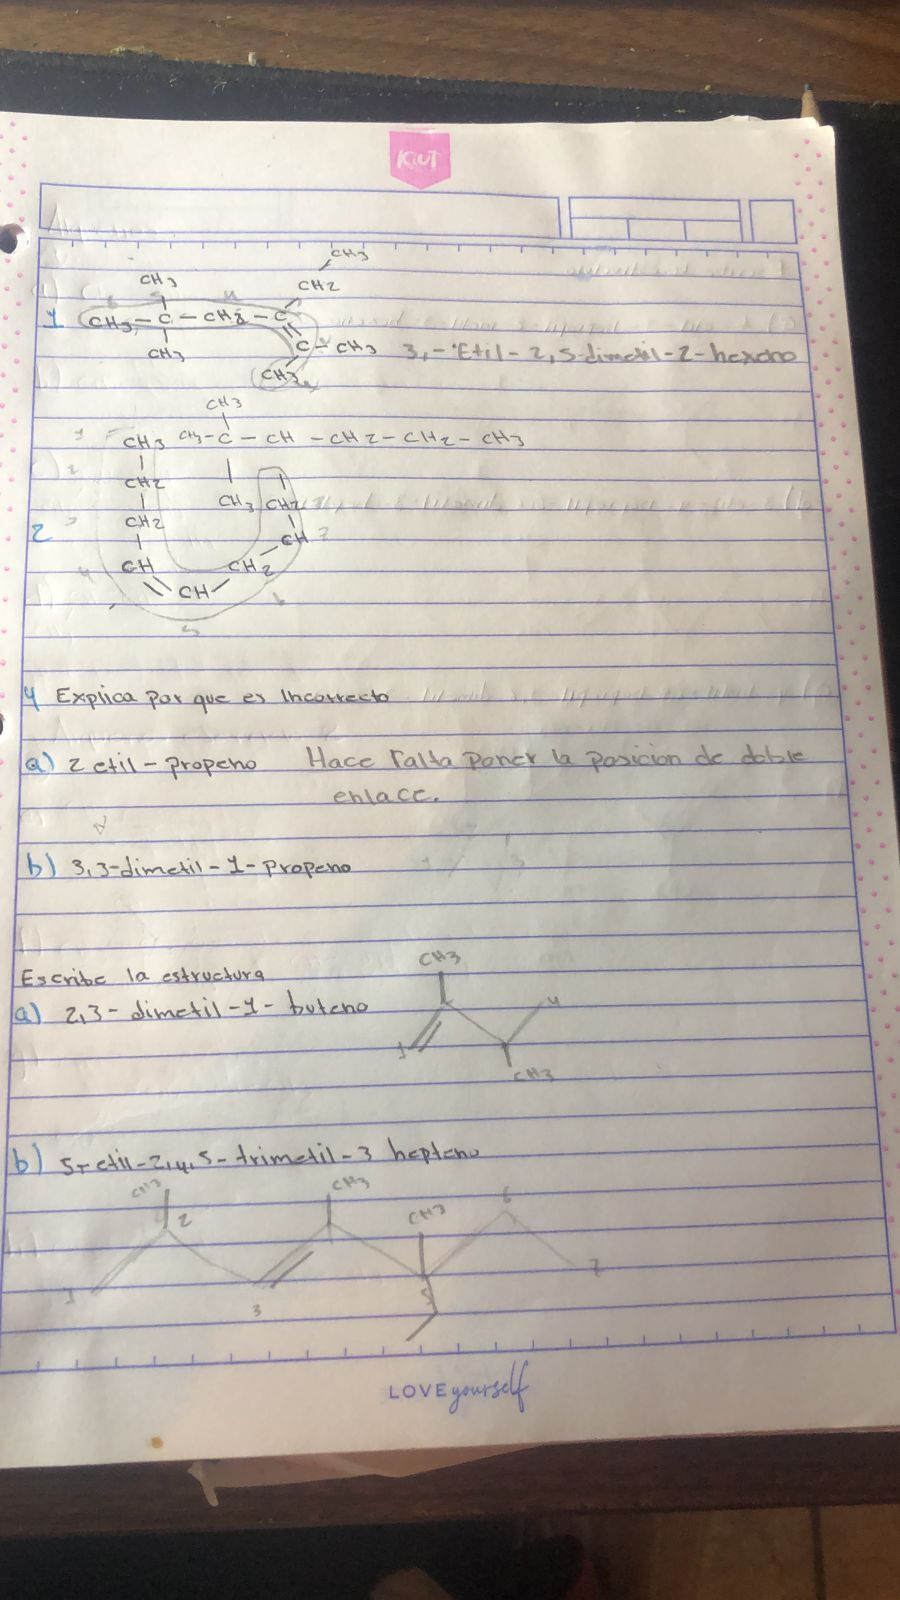 KIUT
CH3
CH3 CH2
1 CH3 - C - CH2 - C
CH3 C - CH3 3,- Etil - 2,5-dimetil-2-hexeno
CH3
CH3
CH3 CH3 - C - CH - CH2 - CH2 - CH3
CH2
CH3 CH2
CH2
2 CH 7
4 CH CH2
CH
6
5
4 Explica por que es Incorrecto
a) 2 etil - propeno Hace Falta poner la posicion de doble
enlace.
b) 3,3-dimetil-1-propeno
CH3
Escribe la estructura
a) 2,3-dimetil-1-buteno 4
1
CH3
b) 5-etil-2,4,5-trimetil-3 hepteno
CH3 CH3
2 CH3 6
1 3 5 7
LOVE yourself